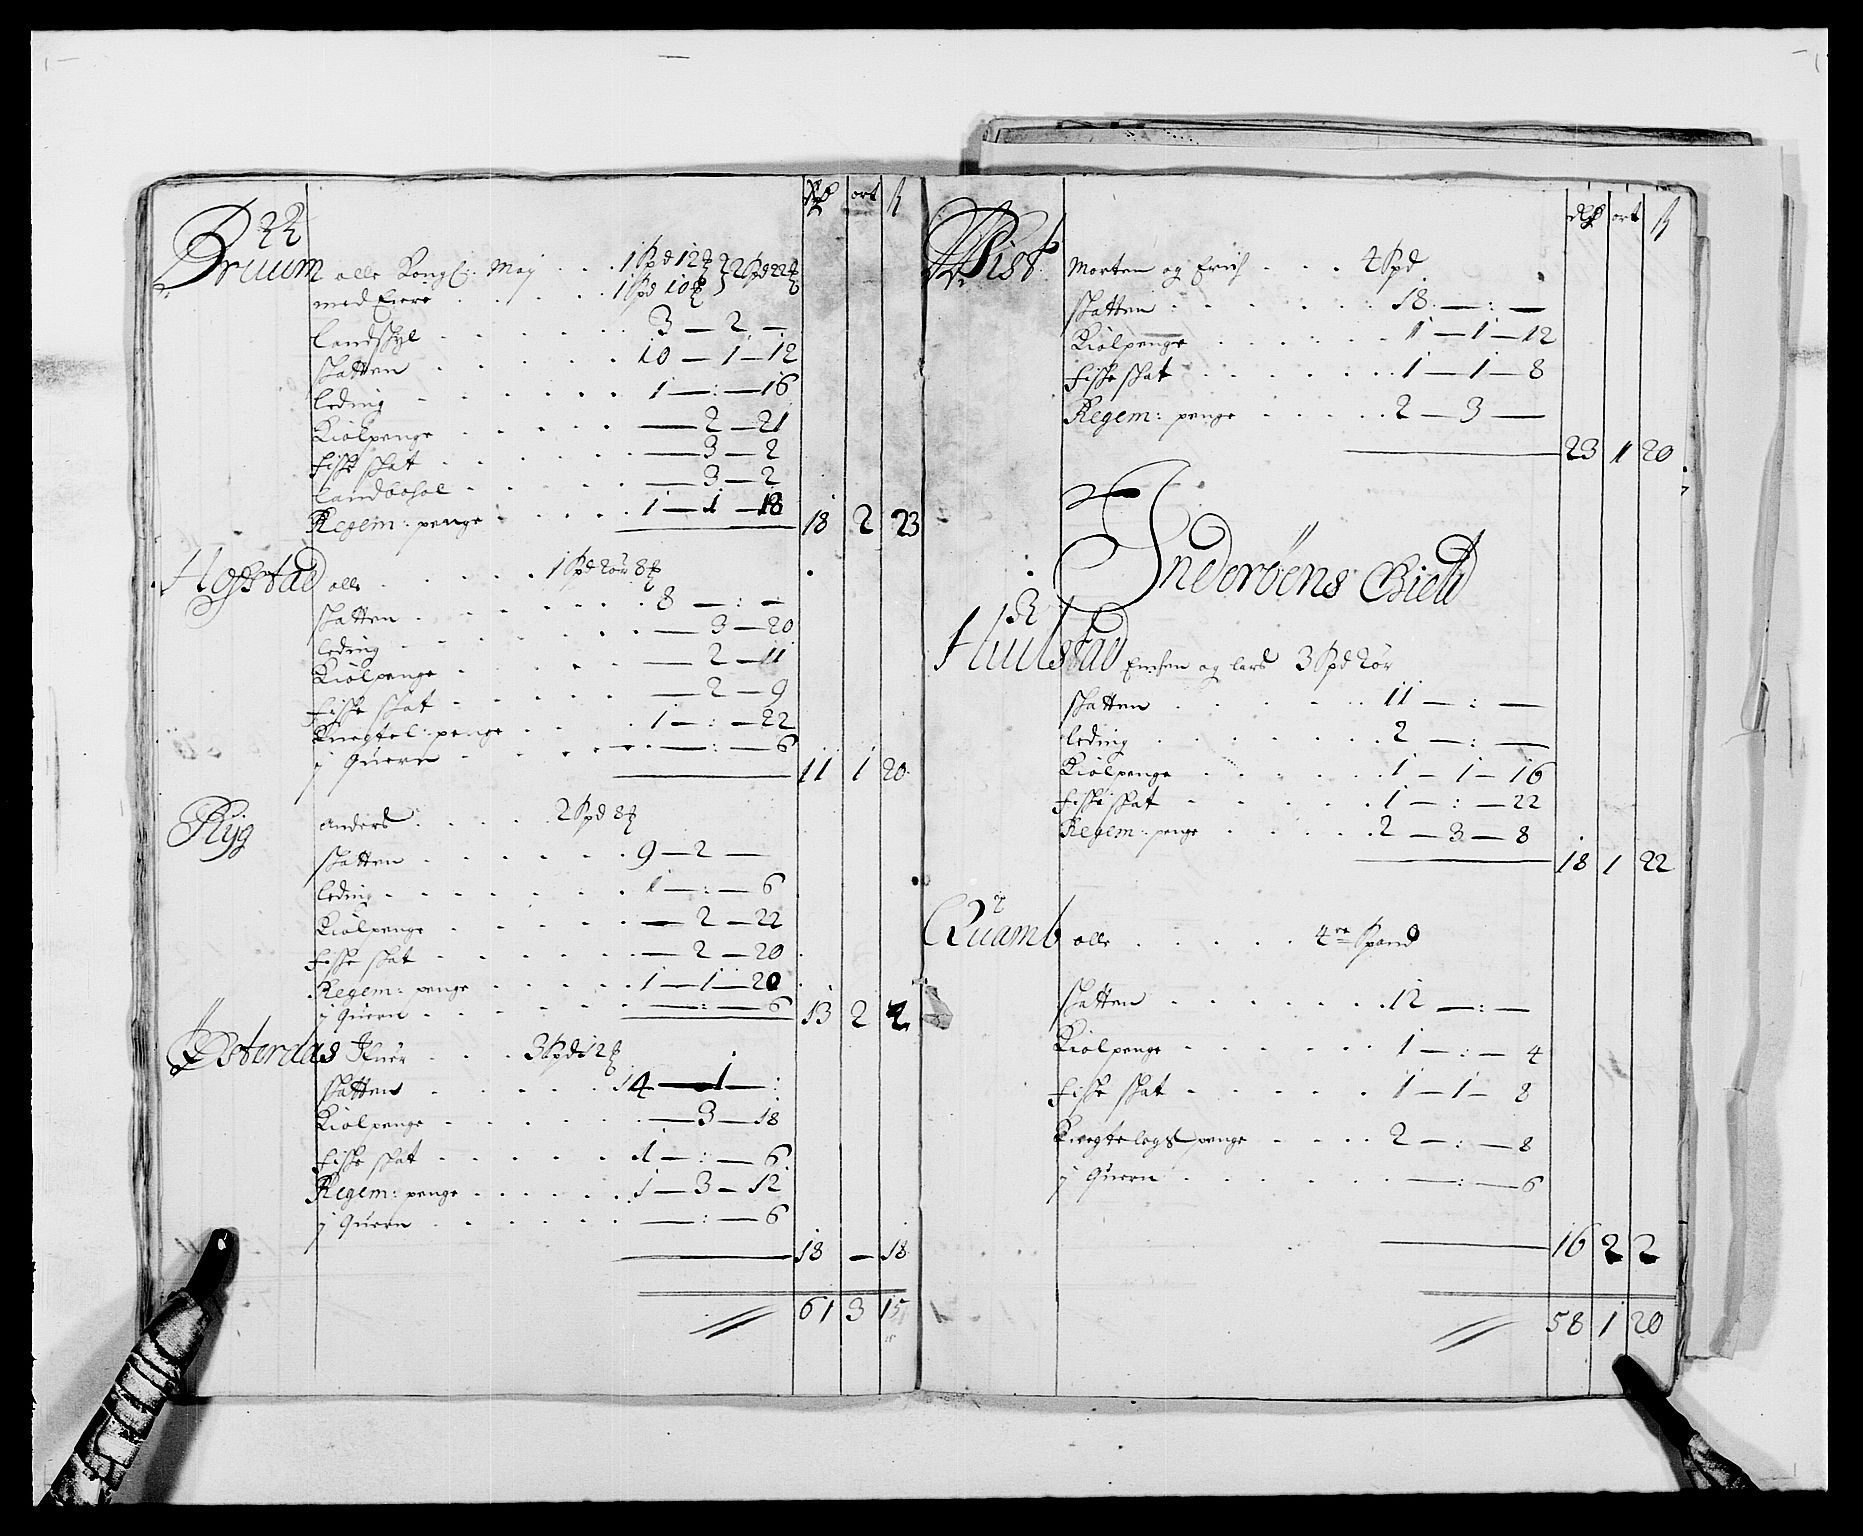 ort
Bruum olle Kongl. May . . . 1 Spd 12
22
2 Spd 22
med Eiere . . . 1 Spd 10
landskyl . . . 3 — 2 —
skatten . . . 10 — 1 — 12
leding . . . 1 — : — 16
Kiølpenge . . . — 2 — 21
fiske skat . . . — 3 — 2
landbohol . . . — 3 — 2
Regem: penge . . . 1 — 1 — 18
18 2 23
Hogstad olle . . . 1 Spd 2ør 8
skatten . . . 8 — : —
leding . . . — 3 — 20
Kiølpenge . . . — 2 — 11
fiske skat . . . — 2 — 9
Knegtel: penge . . . 1 — : — 22
j Quern . . . — : — 6
11 1 20
Ryg anders . . . 2 Spd 8
skatten . . . 9 — 2 —
leding . . . 1 — : — 6
Kiølpenge . . . — 2 — 22
fiske skat . . . — 2 — 20
Regem: penge . . . 1 — 1 — 20
j Quern . . . — : — 6
13 2 2
Østerdas Ifuer . . . 3 Spd 12
skatten . . . 14 — 1 — :
Kiølpenge . . . — 3 — 18
fiske skat . . . 1 — : — 6
Regem: penge . . . 1 — 3 — 12
j Quern . . . — : — 6
18 — 18
61 3 15
ort
Wist Morten og Erich . . . 4 Spd
skatten . . . 18 — : —
Kiølpenge . . . 1 — 1 — 12
fiske skat . . . 1 — 1 — 8
Regem: penge . . . 2 — 3 —
23 1 20
Inderøens Gield
Huulstad Ensten og lars 3 Spd 2ør
skatten . . . 11 — : —
leding . . . 2 — : —
Kiølpenge . . . 1 — 1 — 16
fiske skat . . . 1 — : — 22
Regem: penge . . . 2 — 3 — 8
18 1 22
Quamb olle . . . 4re Spand
skatten . . . 12 — : —
Kiølpenge . . . 1 — : — 4
fiske skat . . . 1 — 1 — 8
Knegtelogs penge . . . 2 — : — 8
j Quern . . . — : — 6
16 2 2
58 1 20